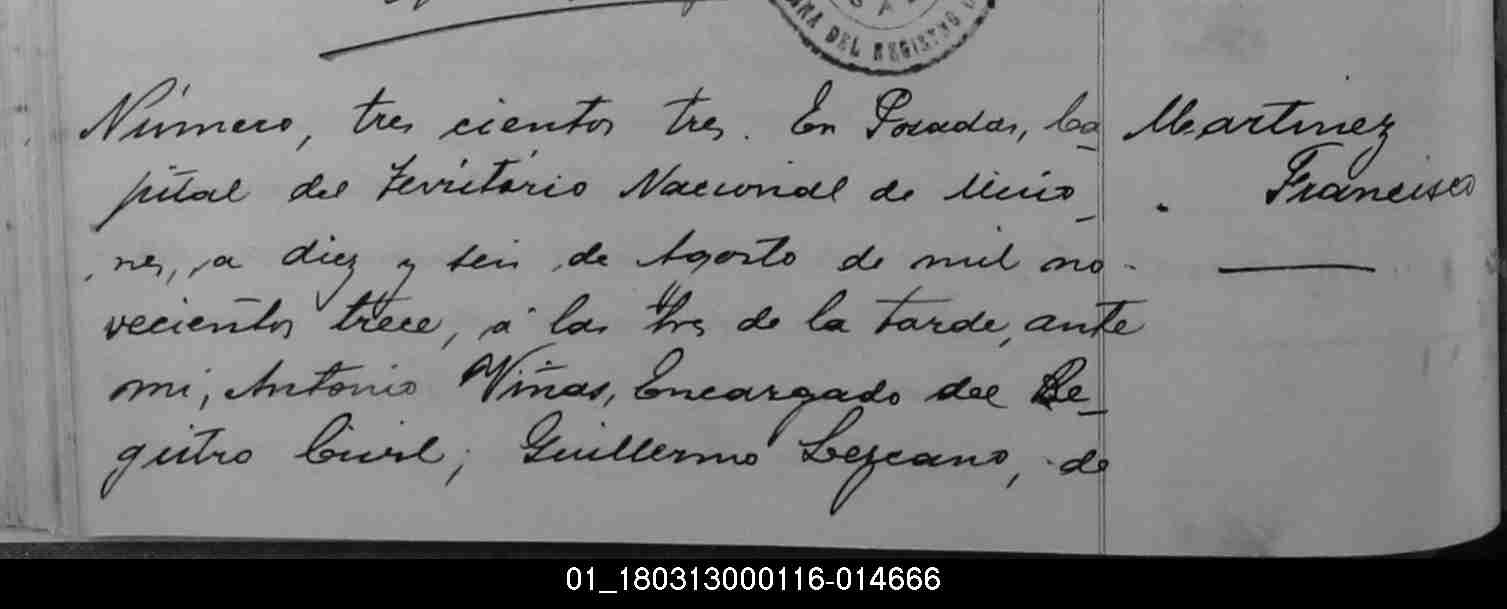 DEL REGISTRO
Número, tres cientos tres. En Posadas, Ca_
pital del Territorio Nacional de Misio_
nes, a diez y seis de Agosto de mil no-
vecientos trece, á las tres de la tarde, ante
mi, Antonio Viñas, Encargado del Re_
gistro Civil; Guillermo Lezcano, de
Martinez
Francisco
01_180313000116-014666